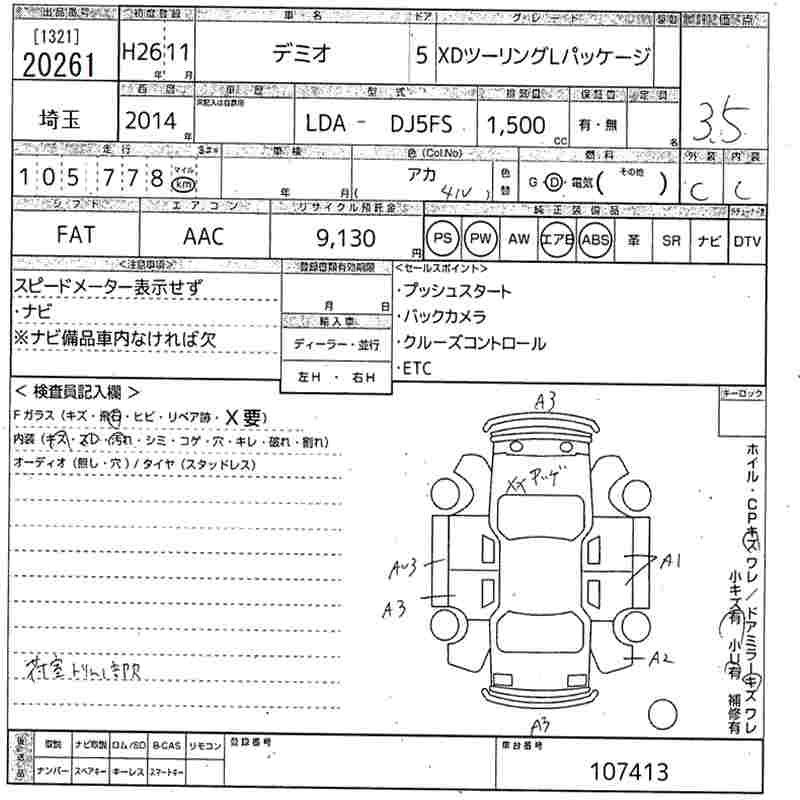 出品番号 初度登録 車・名 ドア グレード
[1321]
20261 H26 11 デミオ 5 XDツーリングLパッケージ
年 月
西暦 車歴 型式 排気量 保証書 定員
未記入は自家用
埼玉 2014 年 LDA - DJ5FS 1,500 cc 有・無 名 3.5
走行 車検 色(Col.No) 燃料 外装 内装
105,778 マイル km 年 月 アカ ( 41V ) 色替 G・D・電気( その他 ) C C
シフト エアコン リサイクル預託金 純正装備品
FAT AAC 9,130 円 PS PW AW エアB ABS 革 SR ナビ DTV
<注意事項> 登録書類有効期限 <セールスポイント>
スピードメーター表示せず ・プッシュスタート
・ナビ 月 日 ・バックカメラ
※ナビ備品車内なければ欠 輸入車 ・クルーズコントロール
ディーラー・並行 ・ETC
左H ・ 右H
< 検査員記入欄 > キーロック
Fガラス(キズ・飛石・ヒビ・リペア跡・X要)
内装(キズ・スレ・汚れ・シミ・コゲ・穴・キレ・破れ・割れ)
オーディオ(無し・穴)/タイヤ(スタッドレス)
A3
XX アッゲ
A1
AU3
A3
A2
A3
荷室トリム
ホイル・CPキズ ワレ/ドアミラーキズ ワレ
小キズ有 小U有 補修有
後日送り品 取説 ナビ取説 ロム/SD B-CAS リモコン 登録番号 車台番号
ナンバー スペアキー キーレス スマートキー 107413